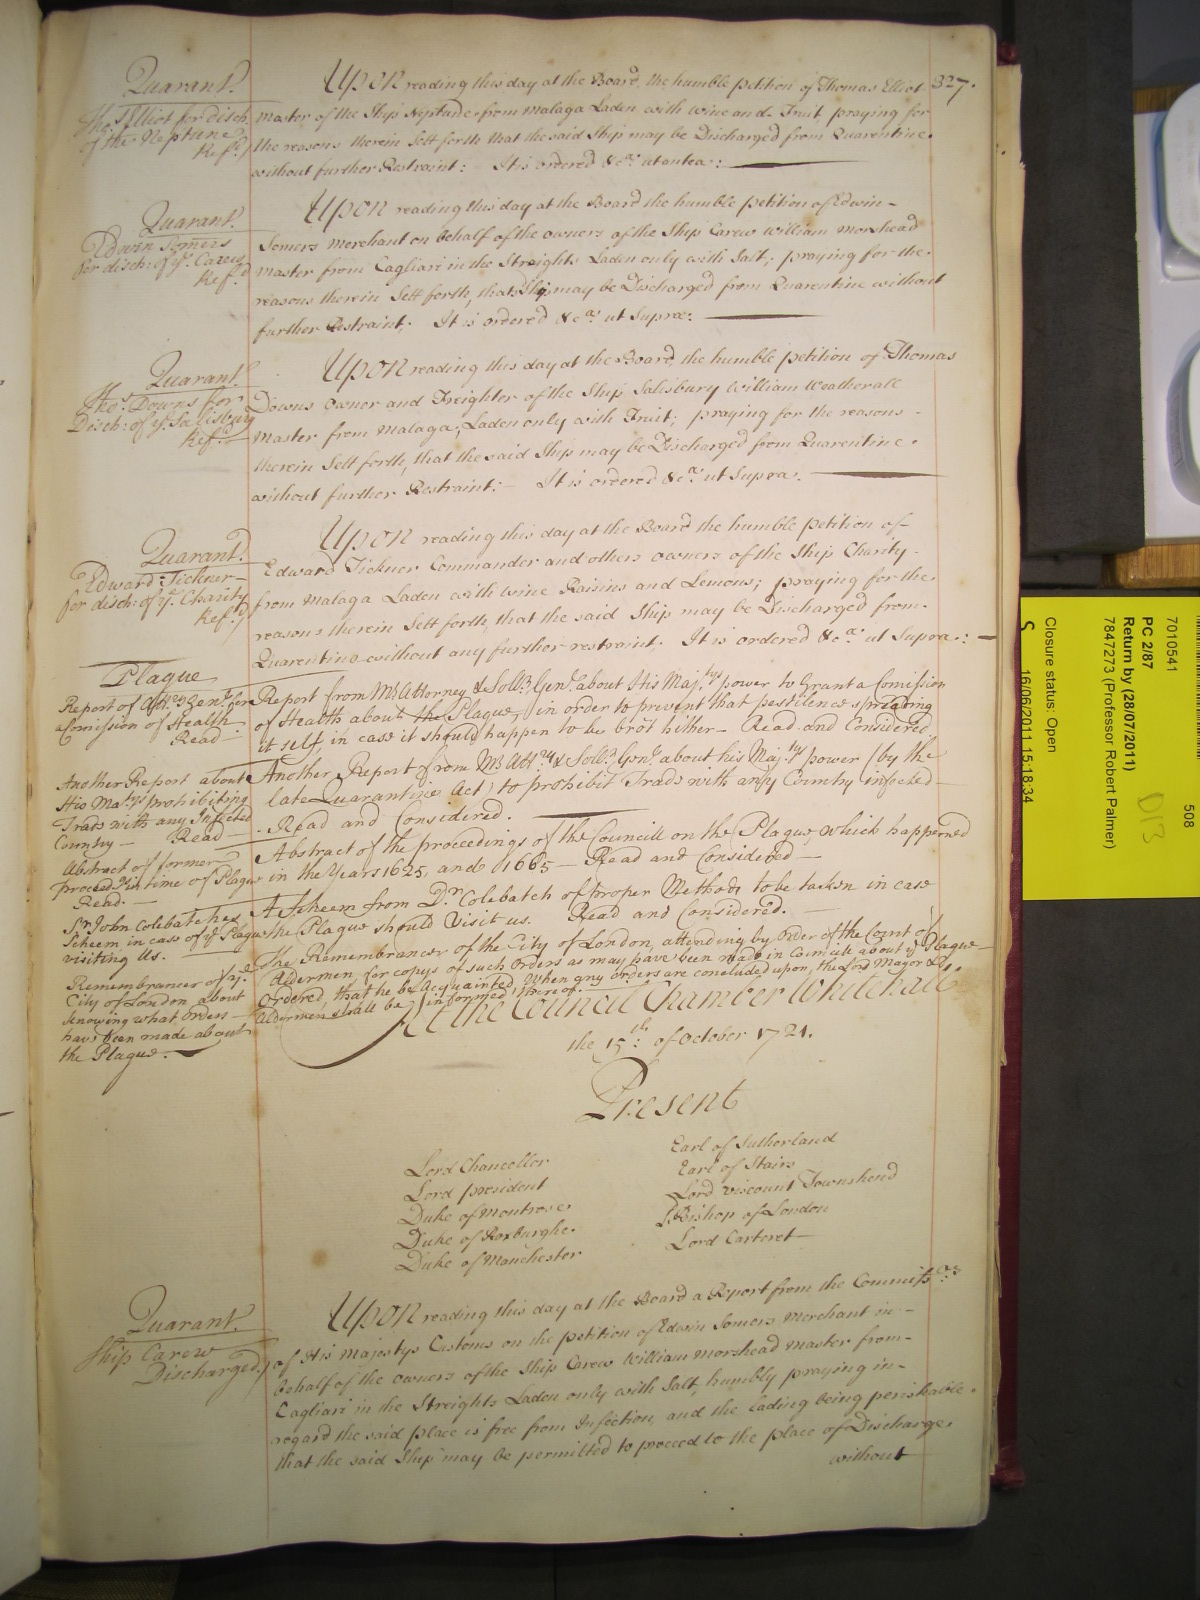 327.
Quarant.
Tho.s Elliot for disch.
of the Neptune
Ref.d
Upon reading this day at the Board, the humble petition of Thomas Elliot
Master of the Ship Neptude from Malaga Laden with wine and Fruit, praying for
the reasons therein Sett forth that the said Ship may be Discharged from Quarentine
without further Restraint: It is ordered &c.a ut antea:
Quarant.
Edwin Somers
for disch: of ye. Carew
Ref.d
Upon reading this day at the Board the humble petition of Edwin
Somers Merchant on behalf of the owners of the Ship Carew William Morshead
Master from Cagliari in the Streights Laden only with Salt; praying for the
reasons therein Sett forth, that Ship may be Discharged from Quarentine without
further Restraint. It is ordered &c.a ut Supra:
Quarant.
Tho.s Downs for
Disch: of ye. Salisbury
Ref.d
Upon reading this day at the Board, the humble petition of Thomas
Downs Owner and Freighter of the Ship Salisbury William Weatherall
Master from Malaga, Laden only with Fruit; praying for the reasons
therein Sett forth, that the said Ship may be Discharged from Quarentine
without further Restraint: It is ordered &c.a ut Supra.
Quarant.
Edward Tickner
for disch: of ye. Charity
Ref.d
Upon reading this day at the Board the humble petition of
Edward Tickner Commander and others owners of the Ship Charity
from Malaga Laden with wine Raisins and Lemons; praying for the
reasons therein Sett forth, that the said Ship may be Discharged from
Quarentine without any further restraint. It is ordered &c.a ut Supra:
Plague
Report of Att.ry & Gen.l for
a Comission of Health
Read
Report from Mr. Attorney & Soll.r Gen.l about His Maj.tys power to Grant a Comission
of Health about the Plague, in order to prevent that pestilence spreading
it self, in case it should happen to be brôt hither Read and Considered
Another Report about
His Ma.tys prohibiting
Trade with any Infected
Country Read
Another Report from Mr. Att.ry & Soll.r Gen.l about his Maj.tys power (by the
late Quarantine Act) to prohibit Trade with any Country infected
Read and Considered.
Abstract of former
proceed.gs in time of Plague
Read.
Abstract of the proceedings of the Councill on the Plague, which happened
in the Years 1625, and 1665 Read and Considered
Sr. John Colebatches
Scheem in case of ye Plague
visiting Us.
A Scheem from Dr. Colebatch of proper Methods to be taken in case
the Plague should Visit us. Read and Considered.
Remembrancer of ye.
City of London about
knowing what orders
have been made about
the Plague.
The Remembrancer of the City of London, attending by order of the Court of
Aldermen, for copys of such Orders as may have been made in Councill about ye Plague
Ordered, that he be Acquainted, When any orders are concluded upon, the Lord Mayor &
Aldermen shall be informed thereof.
At the Council Chamber Whitehall
the 15th: of October 1721.
Present
Lord Chancellor
Lord president
Duke of Montrose
Duke of Roxburghe
Duke of Manchester
Earl of Sutherland
Earl of Stairs
Lord Viscount Townshend
Ld. Bishop of London
Lord Carteret
Quarant.
Ship Carew
Discharged
Upon reading this day at the Board a Report from the Commiss.rs
of His Majestys Customs on the petition of Edwin Somers Merchant in
behalf of the owners of the Ship Carew William Morshead Master from
Cagliari in the Streights Laden only with Salt, humbly praying in
regard the said place is free from Infection, and the lading being perishable
that the said Ship may be permitted to proceed to the place of Discharge
without
508
7010541
PC 2/87
Return by (28/07/2011)
7847273 (Professor Robert Palmer)
D13
Closure status: Open
16/06/2011 15:18:34
S